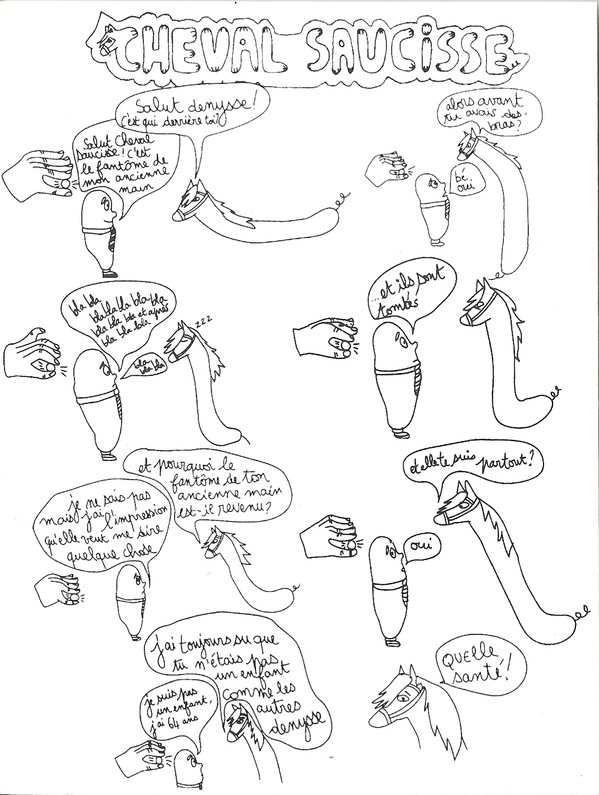 CHEVAL SAUCISSE
Salut denysse!
C'est qui derrière toi?
Salut Cheval
Saucisse! C'est
le fantôme de
mon ancienne
main
alors avant
tu avais des
bras?
bé
oui
bla bla
bla bla bla bla
bla bla bla et après
bla bla bla
bla
bla bla
zzz
...et ils sont
tombés
et pourquoi le
fantôme de ton
ancienne main
est-il revenu?
je ne sais pas
mais j'ai
l'impression
qu'elle veut me dire
quelque chose
et elle te suis partout?
oui
j'ai toujours su que
tu n'étais pas
un enfant
comme les
autres
denysse
je suis pas
un enfant,
j'ai 64 ans
QUELLE
santé!